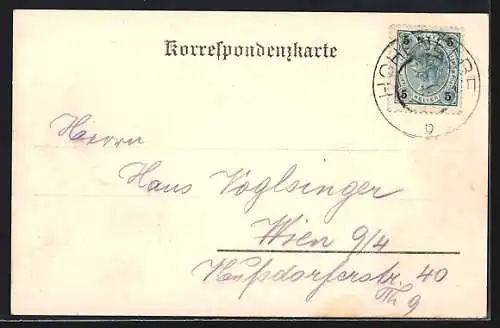 Korrespondenzkarte
5 5
5 5
HELLER
HOHENELBE
9
Herrn
Hans Voglsinger
Wien 9/4
Nußdorferstr. 40
Th 9